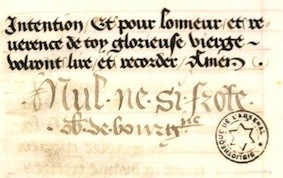 Intention / Et pour lonneur / et re
uerence de toy glorieuse vierge
volront lire / et recorder / Amen .
Nul . ne . si . frote .
ob . de . bourg.ne
BIBLIOTHÈQUE DE L'ARSENAL